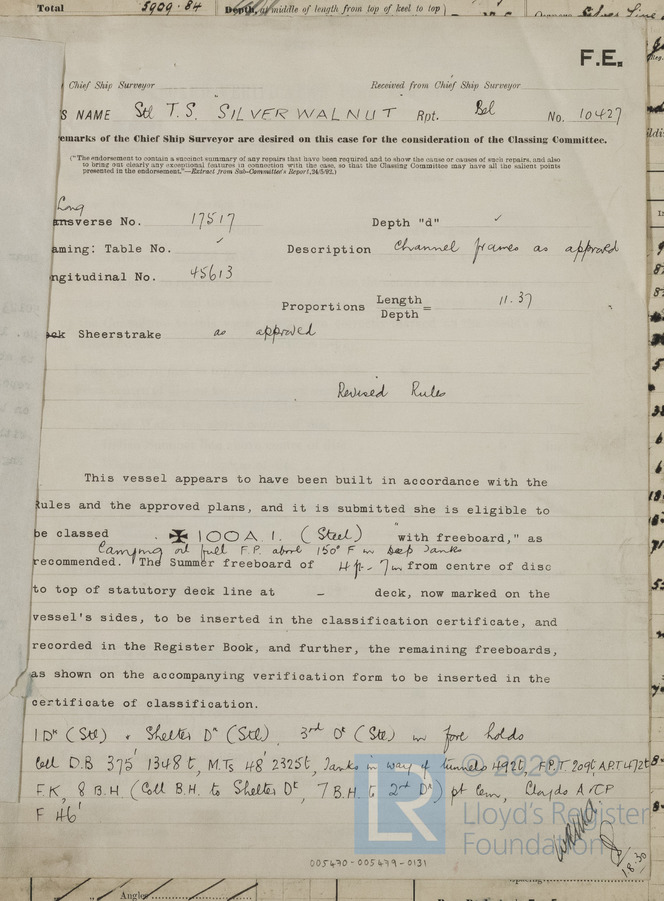 Total 5909.84 Depth, at middle of length from top of keel to top
F.E.
Chief Ship Surveyor Received from Chief Ship Surveyor
S NAME Stl T.S. SILVERWALNUT Rpt. Bel No. 10427
emarks of the Chief Ship Surveyor are desired on this case for the consideration of the Classing Committee.
("The endorsement to contain a succinct summary of any repairs that have been required and to show the cause or causes of such repairs, and also
to bring out clearly any exceptional features in connection with the case, so that the Classing Committee may have all the salient points
presented in the endorsement."—Extract from Sub-Committee's Report, 24/5/92.)
Long
ansverse No. 17517 Depth "d" ✓
aming: Table No. ✓ Description Channel frames as approved
ngitudinal No. 45613
Proportions Length/Depth = 11.37
eck Sheerstrake as approved
Revised Rules
This vessel appears to have been built in accordance with the
Rules and the approved plans, and it is submitted she is eligible to
be classed ✠ 100A.1. (Steel) "with freeboard," as
Carrying oil fuel F.P. above 150°F in deep tanks
recommended. The Summer freeboard of 4 ft - 7 in from centre of disc
to top of statutory deck line at – deck, now marked on the
vessel's sides, to be inserted in the classification certificate, and
recorded in the Register Book, and further, the remaining freeboards,
as shown on the accompanying verification form to be inserted in the
certificate of classification.
1 Dk (Stl) & Shelter Dk (Stl) 3rd Dk (Stl) in fore holds
Cell D.B 375' 1348t, M.Ts 48' 2325t, Tanks in way of tunnels 492t, F.P.T. 209t, A.P.T. 472t
F.K, 8 B.H (Coll B.H. to Shelter Dk, 7 B.H. to 2nd Dk) pt Cem, Lloyds A & CP
F 46'
© 2020
Lloyd's Register
Foundation
LR
18.30
005470-005479-0131
Angles